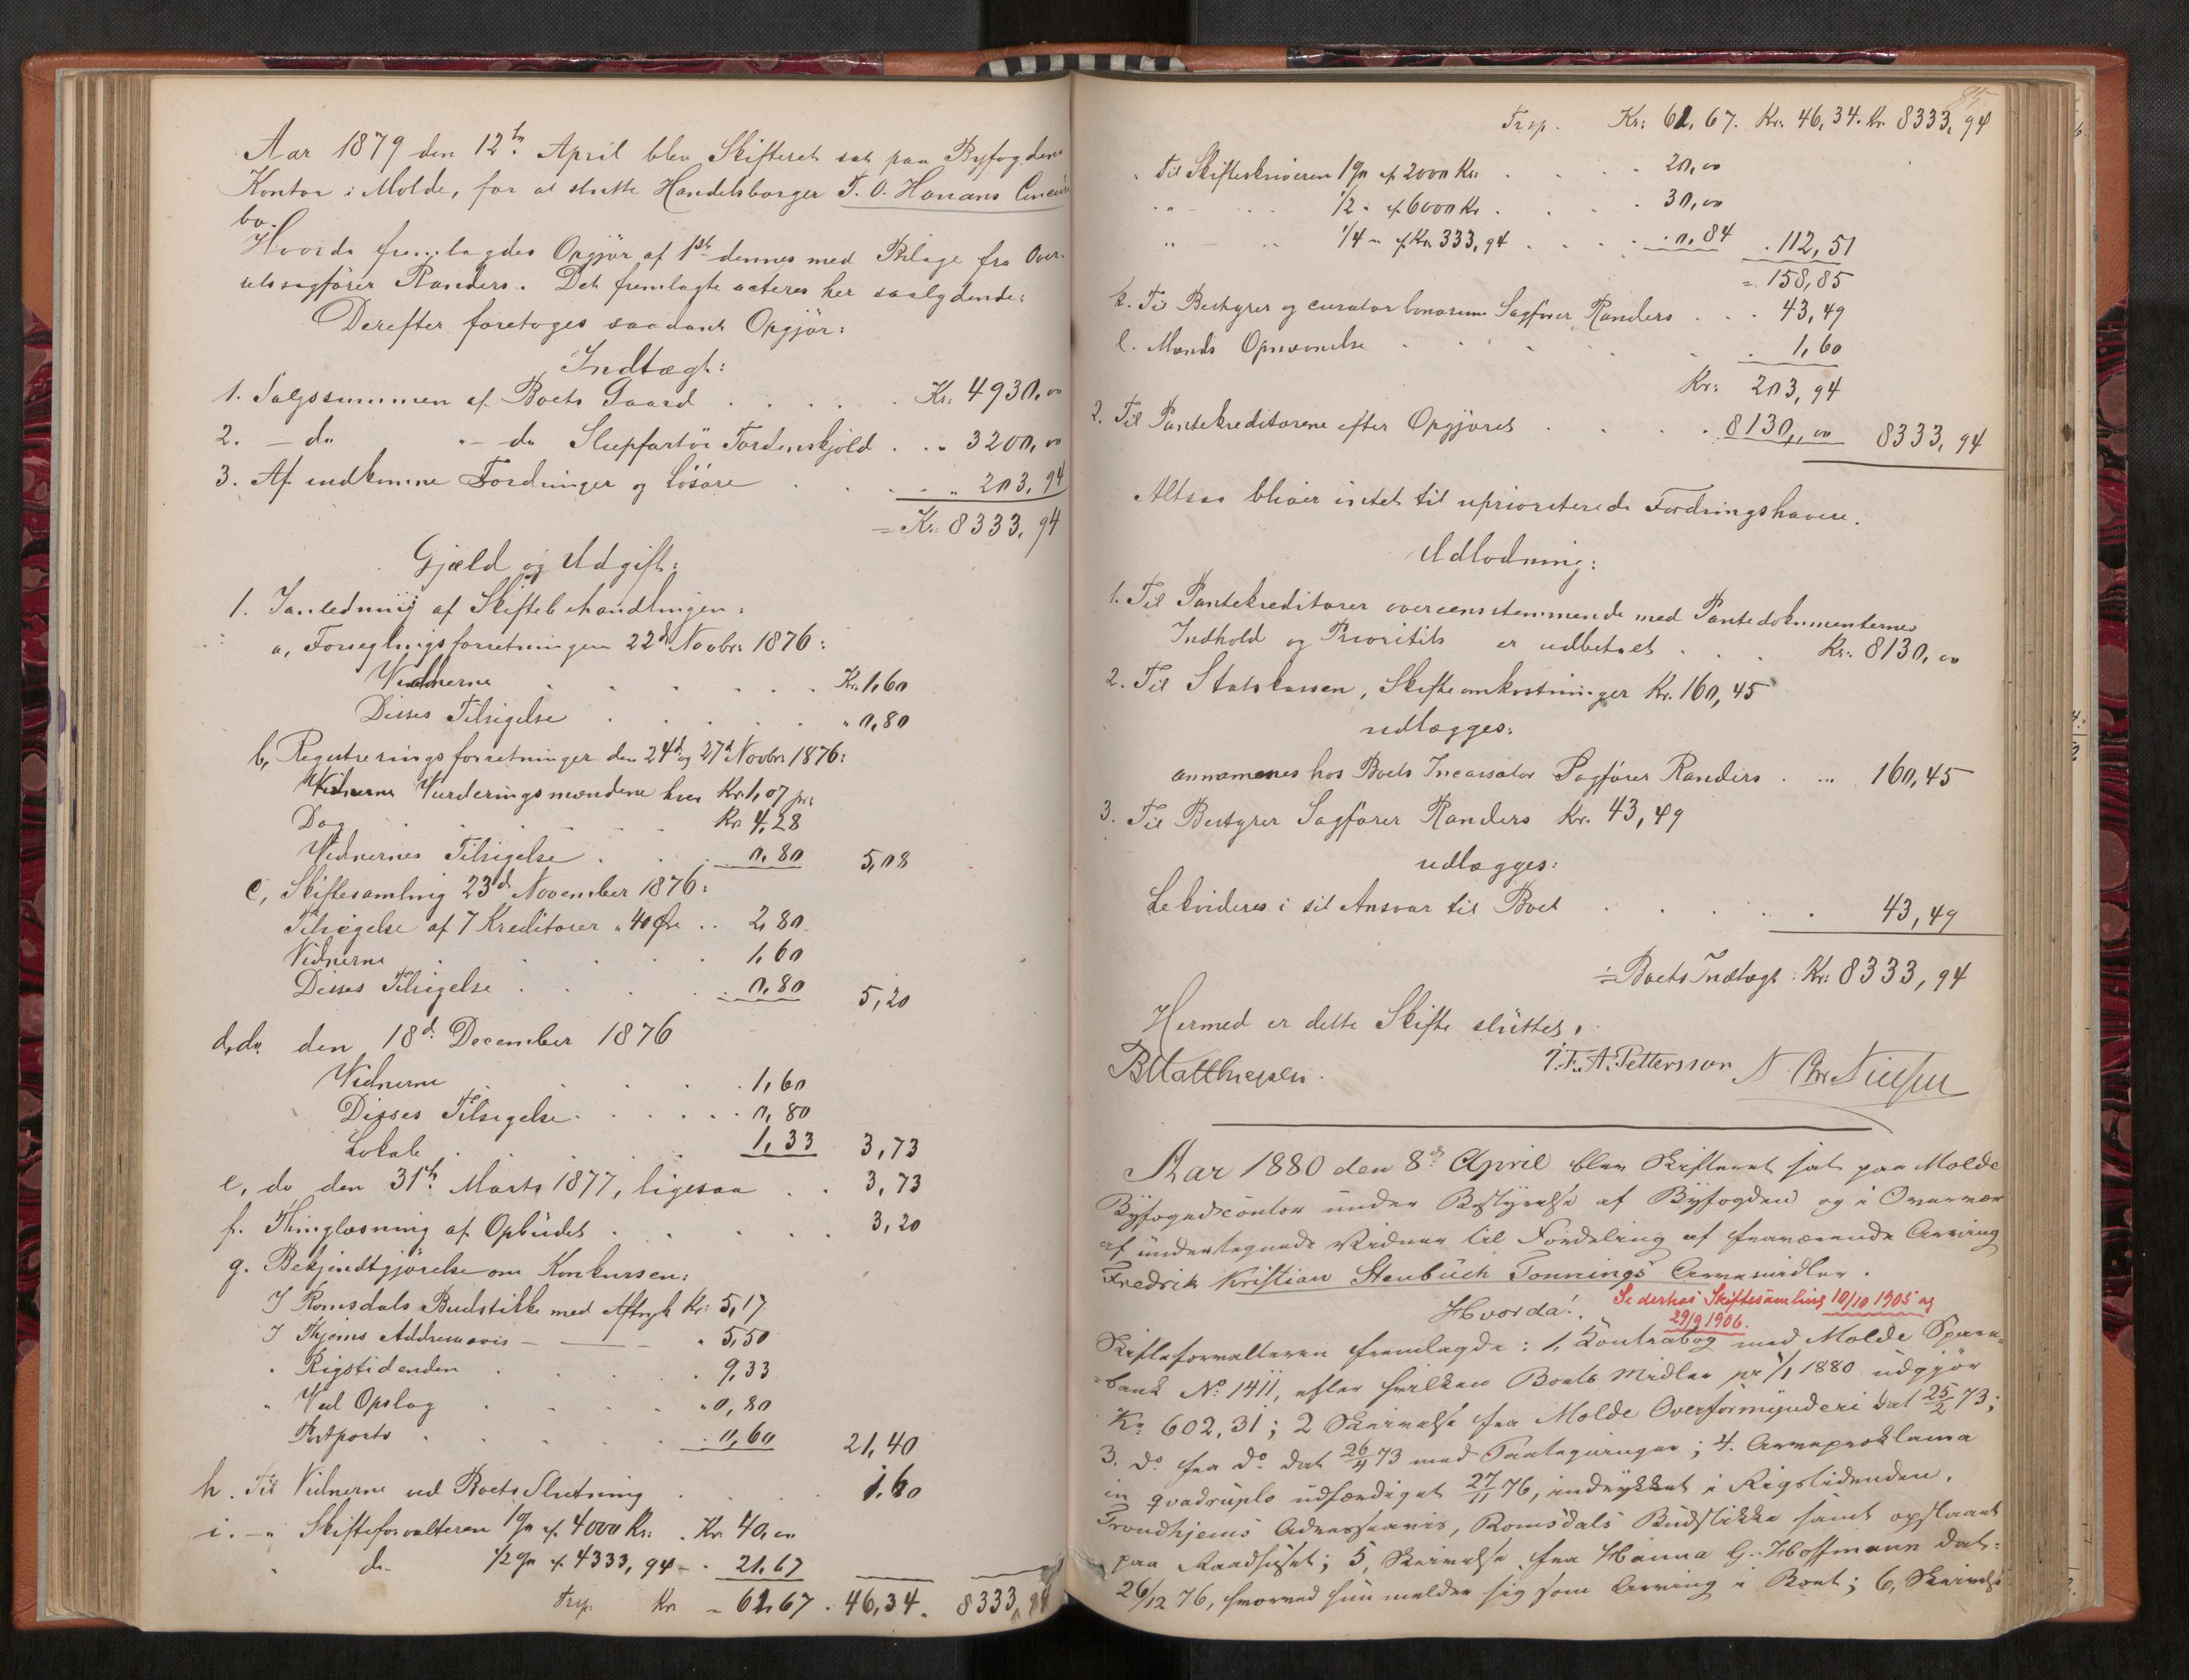 Aar 1879 den 12te April blev Skifteret sat paa Byfogdens
Kontor i Molde, for at slutte Handelsborger T. O. Honans Concurs
bo.
Hvorda fremlagdes Opgjør af 1ste dennes med Bilage fra Over-
retssagfører Randers. Det fremlagte acteres her saalydende:
Derefter foretoges saadant Opgjør:
Indtægt:
1. Salgssummen af Boets Gaard . . . . . Kr. 4930,00
2. – do " – do Slupfartøi Tordenskjold . . . 3200,00
3. Af indkomne Fordringer og Løsøre . . . " 203,94
= Kr. 8333,94
Gjæld og Udgift:
1. I anledning af Skiftebehandlingen:
a, Forseglingsforretningen 22d Novbr: 1876:
Vidnerne . . . . . . Kr. 1,60
Disses Tilsigelse . . . . . " 0,80
b, Registreringsforretninger den 24d og 27d Novbr 1876:
Vurderingsmændene hver Kr. 1,07 pr.
Dag . . . . . Kr. 4,28
Vidnernes Tilsigelse . . . 0.80 5,08
c, Skiftesamling 23d November 1876:
Tilsigelse af 7 Kreditorer " 40 Øre . . 2,80
Vidnerne . . . . . . 1,60
Disses Tilsigelse . . . . . 0.80 5,20
d, do. den 18d December 1876
Vidnerne . . . . 1,60
Disses Tilsigelse . . . . . . 0,80
Lokale . . . . 1,33 3,73
e, do den 31te Marts 1877, ligesaa . . 3,73
f. Thinglæsning af Opbudet . . . . . 3,20
g. Bekjendtgjørelse om Konkursen:
I Romsdals Budstikke med Aftryk Kr: 5,17
I Thjems Adresseavis – — " 5,50
" Rigstidenden . . . . 9,33
" Ved Opslag . . . . " 0,80
Postporto . . . . . 0,60 21,40
h. Til Vidnerne ved Boets Slutning . . . . 1.60
i. – " Skifteforvalteren 1% af 4000 Kr: . Kr. 40,00
" do ½ % af 4333,94 – . 21.67
Trsp. Kr – 61,67 . 46,34 . 8333,94
85
Trsp. Kr: 61,67. Kr. 46,34. Kr. 8333,94
" Til Skifteskriveren 1% af 2000 Kr: . . . . 20,00
" " – " " ½ " af 6000 Kr . . . . 30,00
" – " " ¼ – af Kr 333,94 . . . . 0,84 . 112,51
= 158,85
k. Til Bestyrer og curator bonorum Sagfører Randers . . . 43,49
l. Mænds Opnævnelse . . . . . . 1,60
Kr: 203,94
2. Til Pantekreditorene efter Opgjøret . . . . 8130,00 8333,94
Altsaa bliver intet til uprioriterede Fordringshavere.
Udlodning:
1. Til Pantekreditorer overeensstemmende med Pantedokumenternes
Indhold og Prioritets er udbetalt . . . Kr: 8130,00
2. Til Statskassen, Skifteomkostninger Kr. 160,45
udlægges:
annammes hos Boets Incassator Sagfører Randers . ... 160,45
3. Til Bestyrer Sagfører Randers Kr. 43,49
udlægges:
Likvideres i sit Ansvar til Boet . . . . . 43,49
= Boets Indtægt: Kr: 8333,94
Hermed er dette Skifte sluttet,
B Matthiesen. F. A. Pettersson N. Chr Nielsen
Aar 1880 den 8d April blev Skifteret sat paa Molde
Byfogedcontor under Bestyrelse af Byfogden og i Overvær
af undertegnede Vidner til Fordeling af fraværende Arving
Fredrik Kristian Stenbuch Tonnings Arvemidler.
Hvorda!
Se derhos Skiftesamling 10/10 1905 og
29/9 1906.
Skifteforvalteren fremlagde: 1, Contrabog med Molde Spare-
bank No. 1411, efter hvilken Boets Midler pr 1/1 1880 udgjør
Kr 602,31; 2 Skrivelse fra Molde Overformynderi dat 25/2 73;
3. do fra do dat 26/4 73 med Paategninger; 4. Arveproklama
in qvadruplo udfærdiget 27/11 76, indrykket i Rigstidenden,
Trondhjems Adresseavis, Romsdals Budstikke samt opslaaet
paa Raadhuset; 5, Skrivelse fra Hanna G. Hoffmann dat:
26/12 76, hvorved hun melder sig som Arving i Boet; 6, Skrivelse